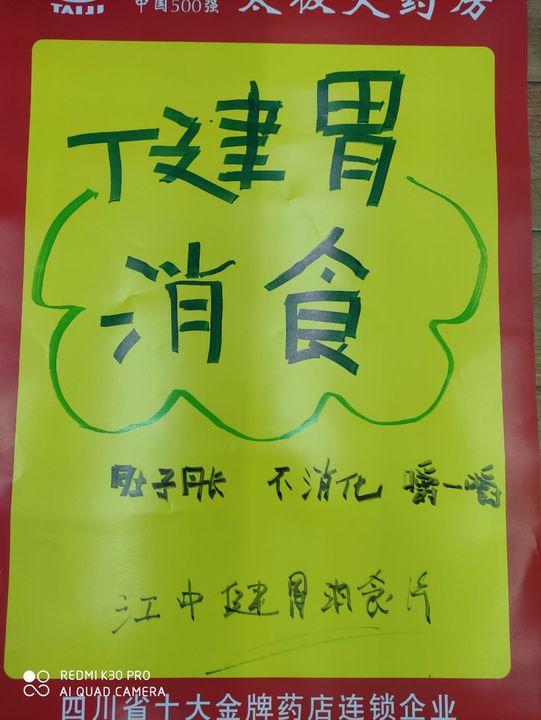 TAIJI 中国500强 太极大药房
健胃
消食
肚子胀 不消化 嚼一嚼
江中健胃消食片
REDMI K30 PRO
AI QUAD CAMERA
四川省十大金牌药店连锁企业